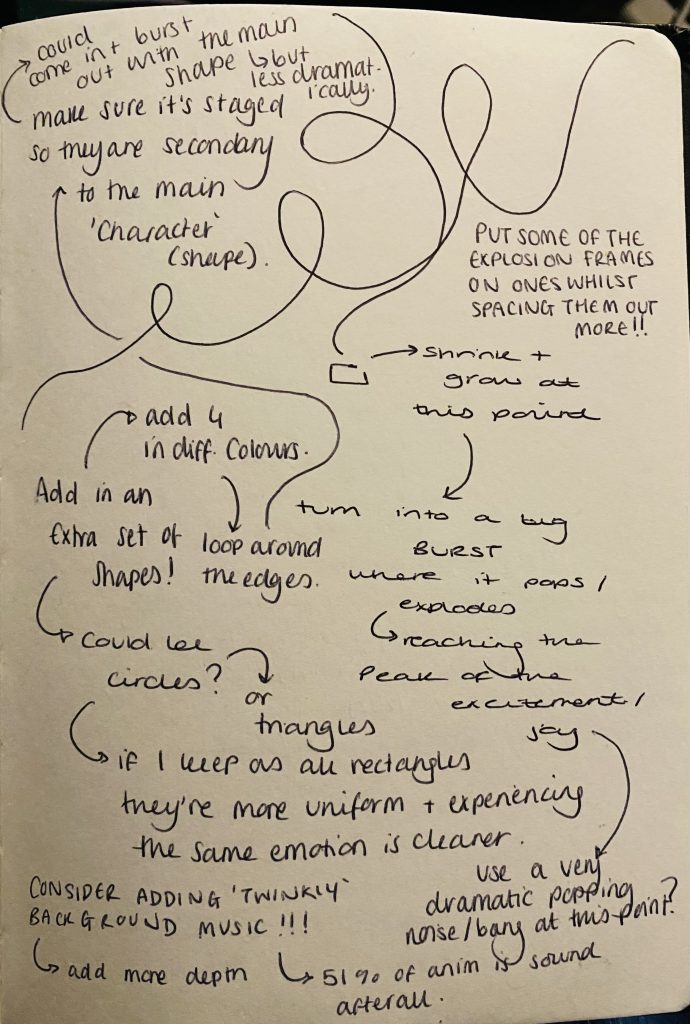 could
come in + burst
out with the main
shape ↳ but
less dramat-
ically.
make sure it's staged
so they are secondary
to the main
'Character'
(shape).
PUT SOME OF THE
EXPLOSION FRAMES
ON ONES WHILST
SPACING THEM OUT
MORE!!
→ shrink +
grow at
this point
turn into a big
BURST
where it pops /
explodes
↳ reaching the
peak of the
excitement /
joy
use a very
dramatic popping
noise / bang at this point?
add 4
in diff. colours.
Add in an
extra set of
shapes!
loop around
the edges.
could be
circles?
or
triangles
if I keep as all rectangles
they're more uniform + experiencing
the same emotion is cleaner.
CONSIDER ADDING 'TWINKLY'
BACKGROUND MUSIC !!!
↳ add more depth
↳ 51% of anim is sound
afterall.